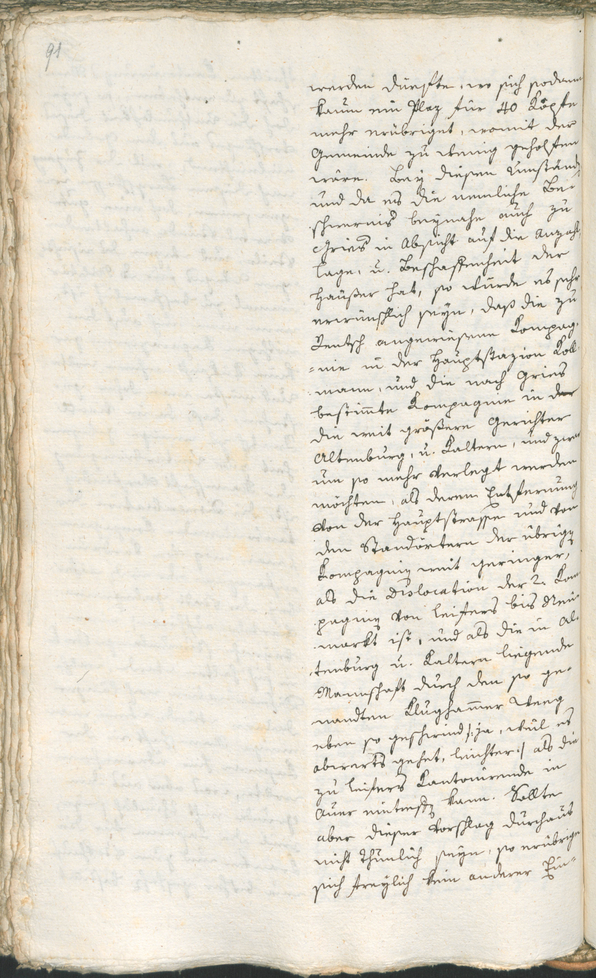 91
werden dürfte, wo sich sodann
kaum ein Plaz für 40 Köpfe
mehr erübriget, womit der
Gemeinde zu wenig geholfen
wäre. Bey diesen Umständ
und da es die nemliche Be-
schwernis beynahe auch zu
Gries in Absicht auf die Anzahl
Lage, u. Beschaffenheit der
Häußer hat, so würde es sehr
erwünschlich seyn, daß die zu
Rentsch angewiesene Kompag-
nie in der Hauptstazion Koll-
mann, und die nach Gries
bestimte Kompagnie in
die weit größere Gerichter
Altenburg, u. Kaltern, und zwar
um so mehr verlegt werden
möchten, als deren Entfernung
von der Hauptstrasse und von
den Standörtern der übrigen
Kompagnien weit geringer,
als die Dislocation der 2. Kom
pagnien von Leifers bis Neu-
markt ist, und als die in Al-
tenburg u. Kaltern liegende
Mannschaft durch den so ge-
nandten Klughamer Weeg
eben so geschwind /: ja, weil es
abwerts gehet, leichter :/ als die
zu Leifers Kantonirende in
Auer eintreffen kann. Sollte
aber dieser Vorschlag durchaus
nicht thunlich seyn, so erübrige
sich freylich kein anderer Ein-